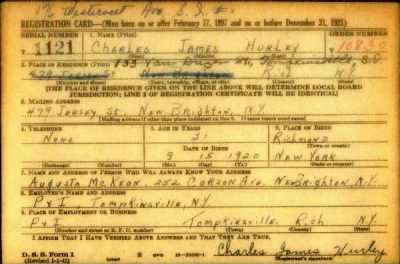 REGISTRATION CARD—(Men born on or after February 17, 1897 and on or before December 31, 1921)
SERIAL NUMBER 1. NAME (Print) ORDER NUMBER
1121 Charles James Hurley 10830
2. PLACE OF RESIDENCE (Print) 133 Van S.I.
479 Jersey St. New Brighton Rich N.Y.
(THE PLACE OF RESIDENCE GIVEN ON THE LINE ABOVE WILL DETERMINE LOCAL BOARD
JURISDICTION; LINE 2 OF REGISTRATION CERTIFICATE WILL BE IDENTICAL)
3. MAILING ADDRESS
479 Jersey St. New Brighton, N.Y.
(Mailing address if other than place indicated on line 2. If same insert word same)
4. TELEPHONE 5. AGE IN YEARS 6. PLACE OF BIRTH
None 21 Richmond
DATE OF BIRTH (Town or county)
9 15 1920 New York
(Exchange) (Number) (Mo.) (Day) (Yr.) (State or country)
7. NAME AND ADDRESS OF PERSON WHO WILL ALWAYS KNOW YOUR ADDRESS
Augusta McKeon, 252 Corson Ave, New Brighton, N.Y.
8. EMPLOYER'S NAME AND ADDRESS
P & I Tompkinsville, N.Y.
9. PLACE OF EMPLOYMENT OR BUSINESS
P & I Tompkinsville, Rich N.Y.
(Number and street or R. F. D. number) (Town) (County) (State)
I AFFIRM THAT I HAVE VERIFIED ABOVE ANSWERS AND THAT THEY ARE TRUE.
D. S. S. Form 1 Charles James Hurley
(Revised 1-5-42) (over)